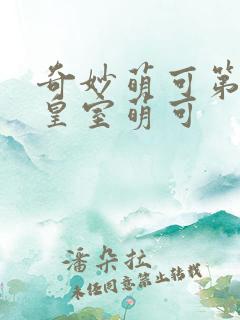 奇妙萌可第
皇室萌可
潘朵拉
未经同意禁止转载